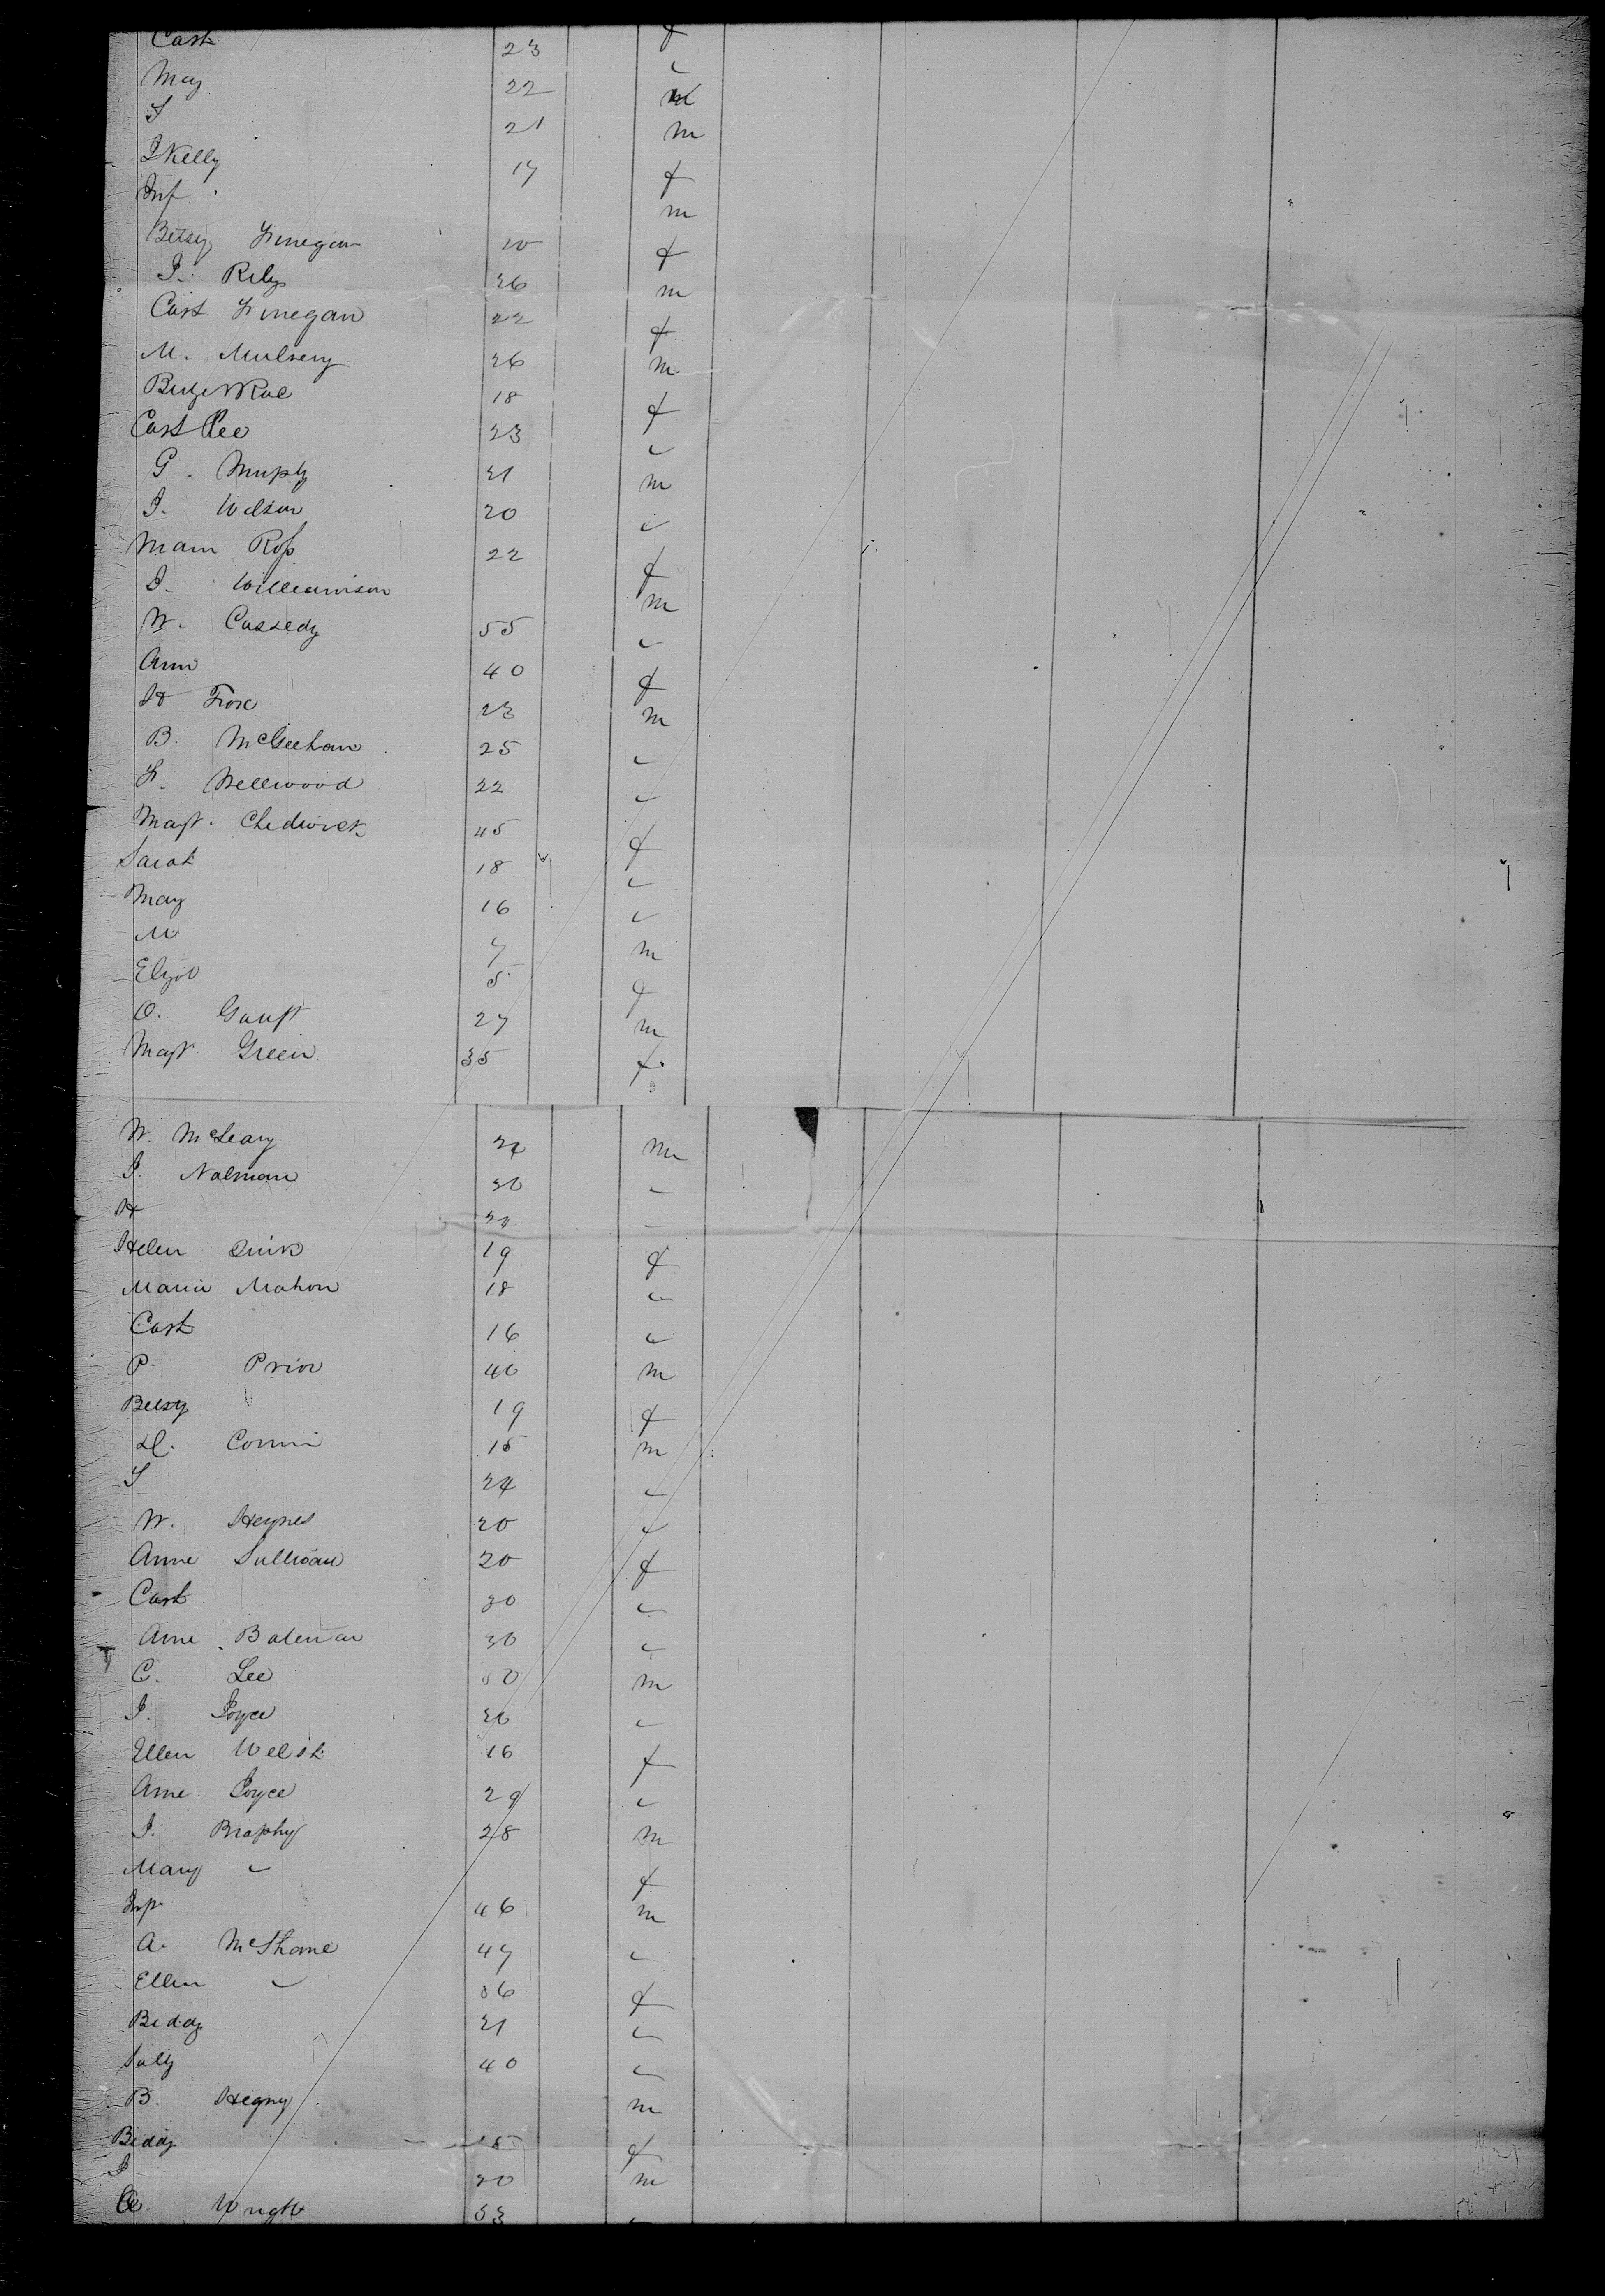 Cath 23 f
May 22 "
S 21 m
J Kelly 17 m
Inf. f
m
Betsy Finegan 20 f
J. Rily 26 m
Cath Finegan 22 f
M. Mulveny 26 m
Bidget Roe 18 f
Cath Lee 23 "
G. Murphy 21 m
J. Wilson 20 "
Mam Ross 22 f
J. Williamson m
W. Cassedy 55 "
Ann 40 f
H Fox 23 m
B. McGeehan 25 "
F. Wellwood 22 "
Magt. Chedwick 45 f
Sarah 18 "
May 16 "
M 7 m
Elyza 5 f
O. 27 m
Magt Green 35 f
W. McLeary 24 m
J. Nolman 30 "
H 24 "
Helen Quirk 19 f
Maria Mahon 18 "
Cath 16 "
P. Prior 40 m
Betsy 19 f
D. Connri 15 m
S 24 "
W. Heynes 20 "
Anne Sullivan 20 f
Cath 30 "
Anne Bateman 30 "
C. Lee 50 m
J. Joyce 26 "
Ellen Welsh 16 f
Anne Joyce 29 "
J. Braphy 28 m
Mary " f
Inf. 46 m
A. McShane 47 "
Ellen " 36 f
Biddy 21 "
Sally 40 "
B. Hegny m
Biddy 18 f
J 20 m
Wright 33 "